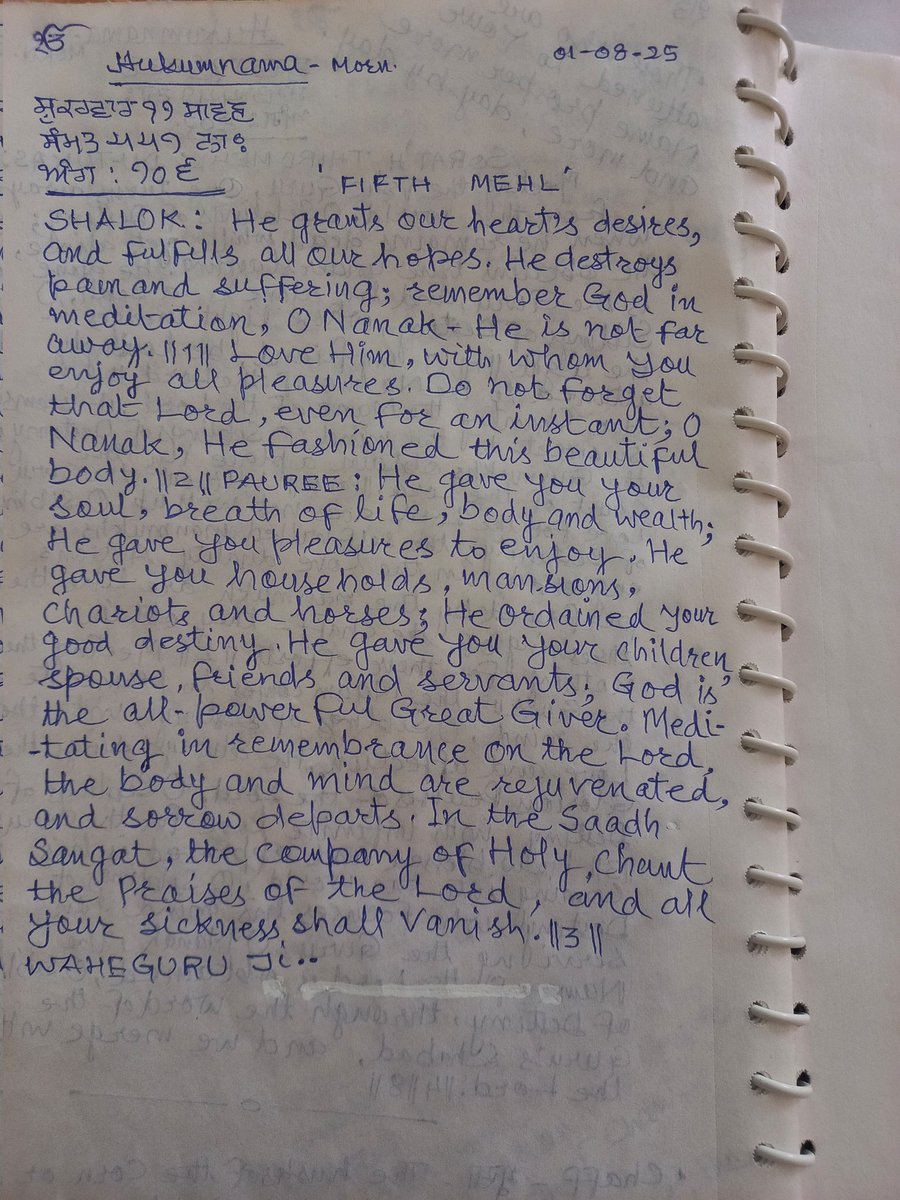 ੴ
Hukumnama - Morn. 01-08-25
ਸ਼ੁਕਰਵਾਰ ੧੧ ਸਾਵਣ
ਸੰਮਤ ੫੫੧ ਨਾ:
ਅੰਗ : ੧੦੬
'FIFTH MEHL'
SHALOK: He grants our heart's desires,
and fulfills all our hopes. He destroys
pain and suffering; remember God in
meditation, O Nanak - He is not far
away. ||1|| Love Him, with whom you
enjoy all pleasures. Do not forget
that Lord, even for an instant; O
Nanak, He fashioned this beautiful
body. ||2|| PAUREE: He gave you your
soul, breath of life, body and wealth;
He gave you pleasures to enjoy. He
gave you households, mansions,
chariots and horses; He ordained your
good destiny. He gave you your children,
spouse, friends and servants; God is
the all-powerful Great Giver. Medi-
-tating in remembrance on the Lord,
the body and mind are rejuvenated,
and sorrow departs. In the Saadh
Sangat, the company of Holy, chant
the Praises of the Lord, and all
your sickness shall vanish. ||3||
WAHEGURU Ji..